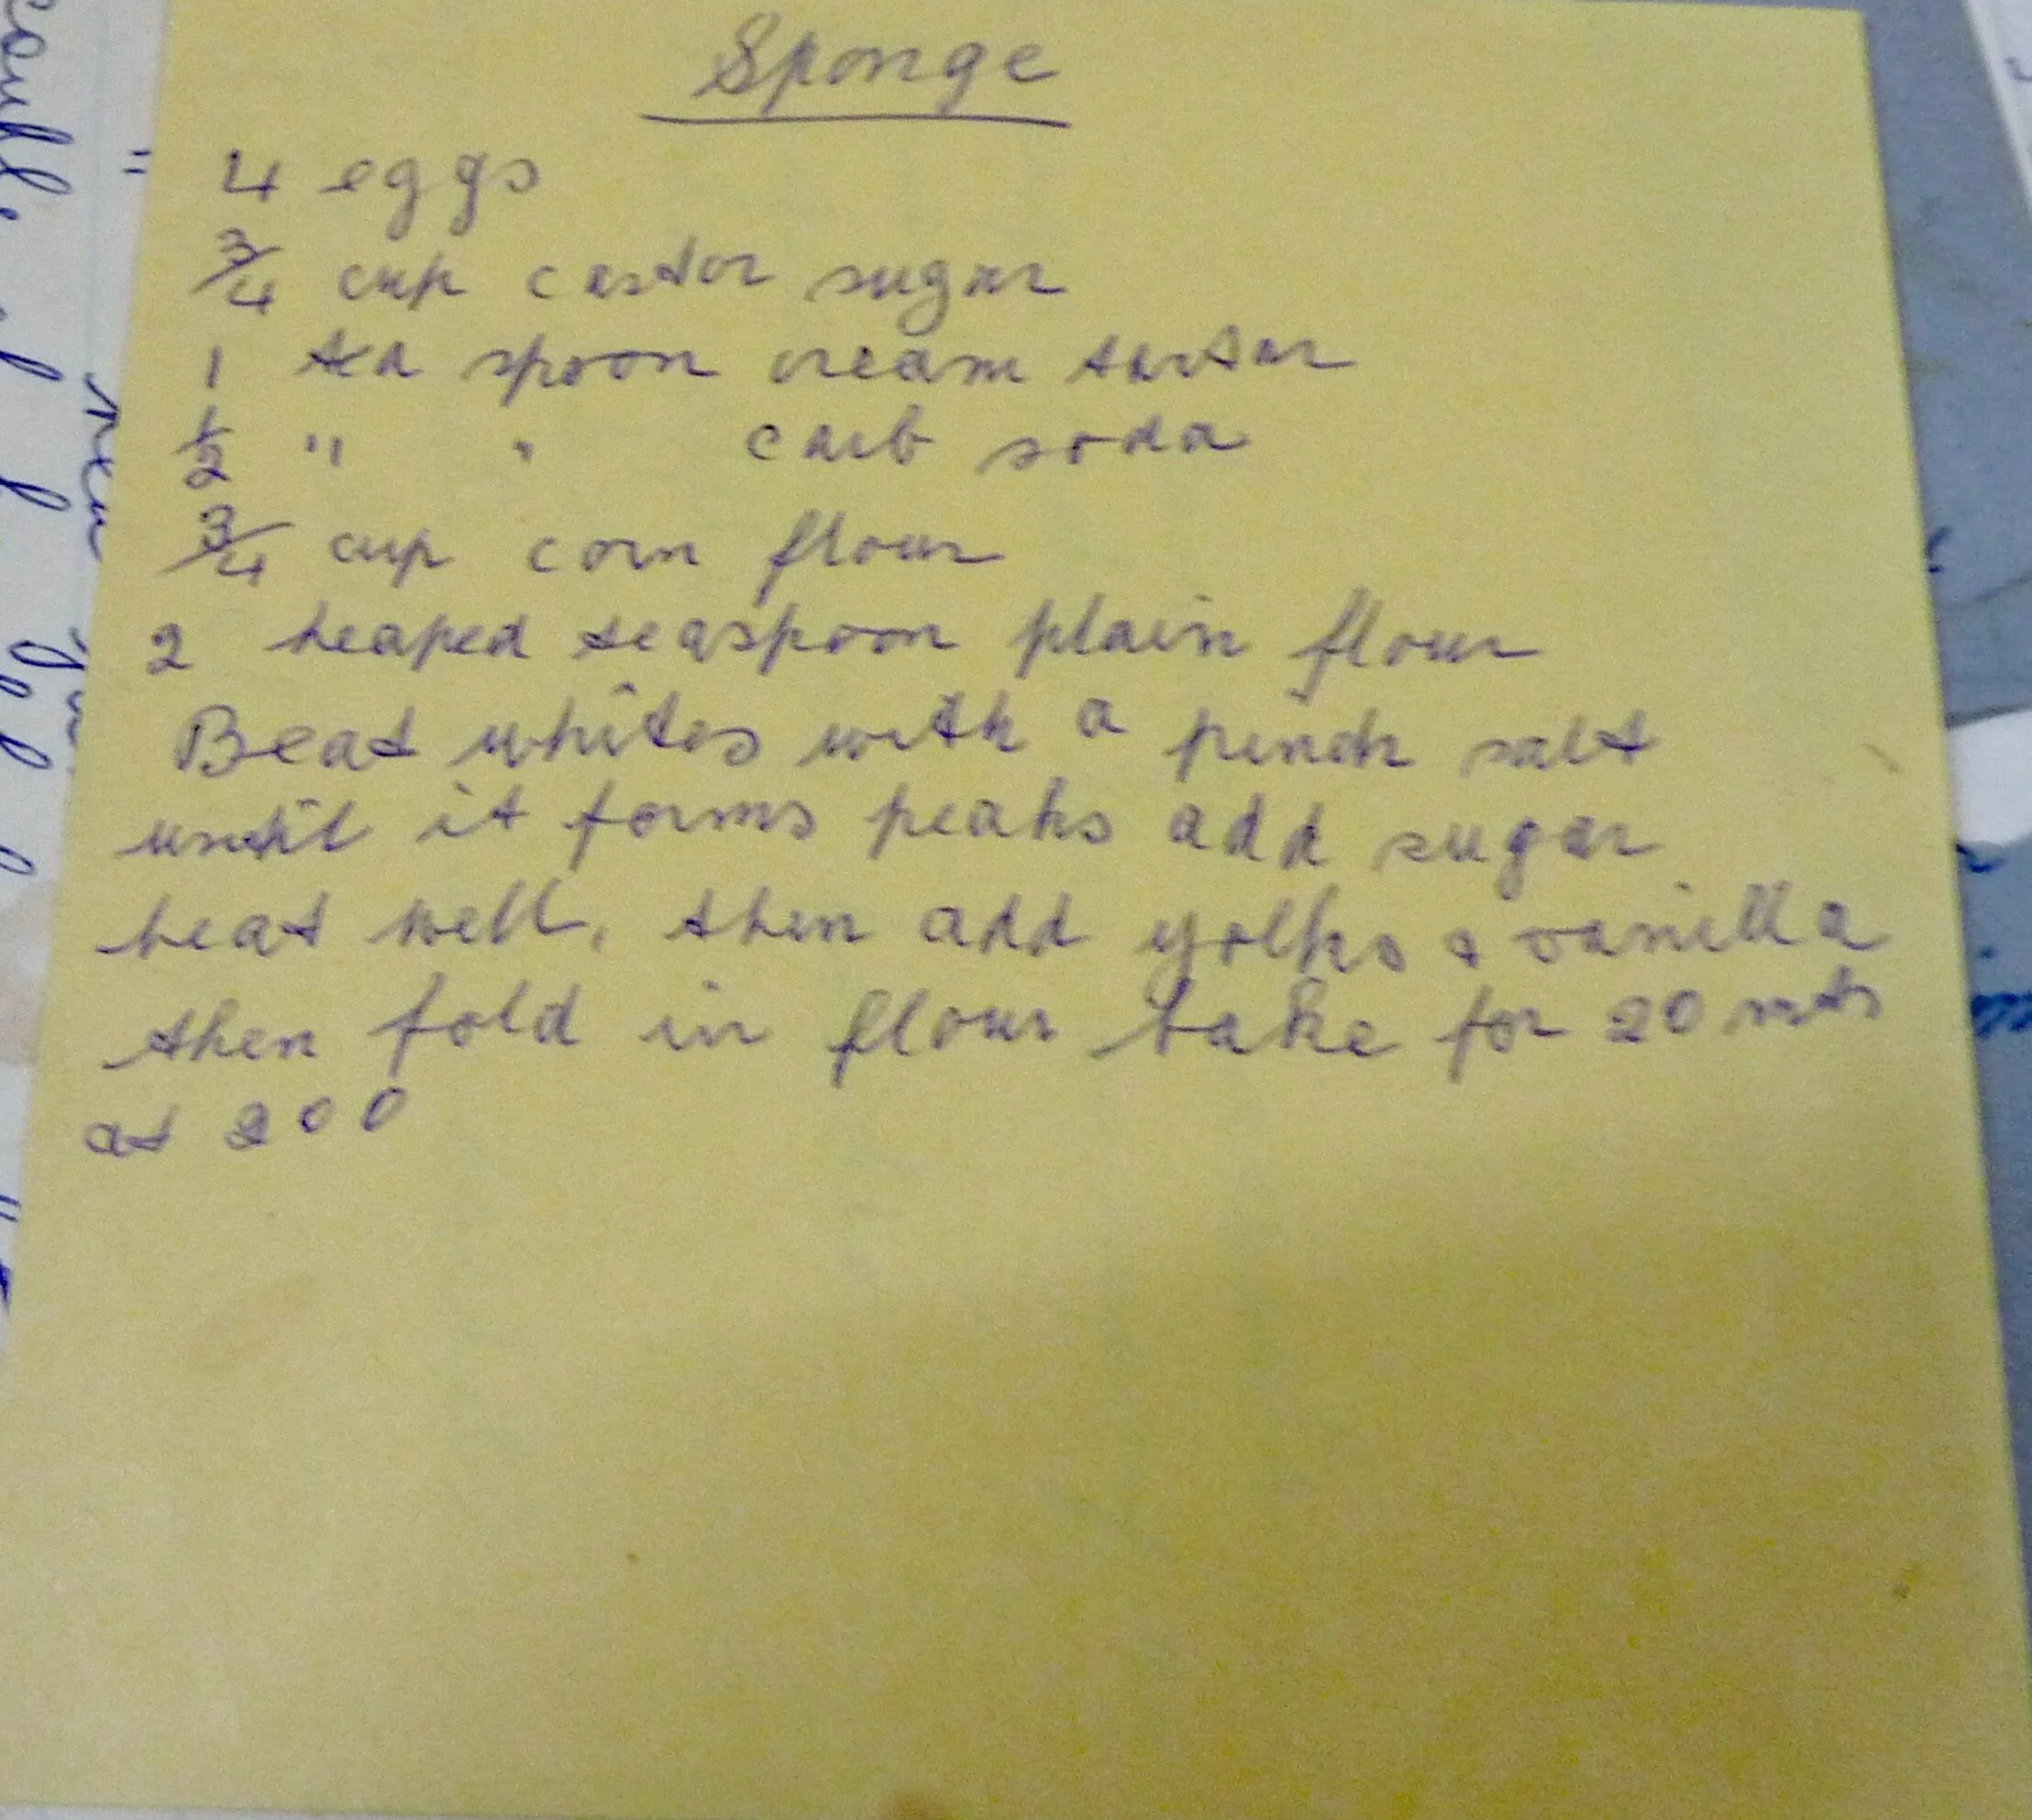 Sponge
4 eggs
3/4 cup castor sugar
1 tea spoon cream tartar
1/2 " " carb soda
3/4 cup corn flour
2 heaped teaspoon plain flour
Beat whites with a pinch salt
until it forms peaks add sugar
beat well, then add yolks & vanilla
then fold in flour bake for 20 mts
at 200